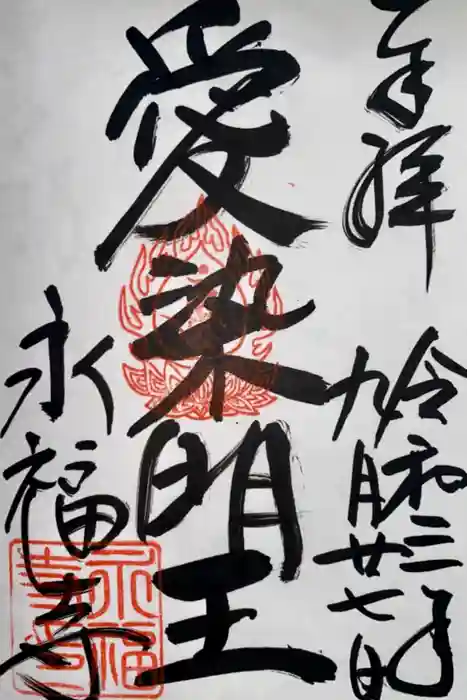 奉拝
令和三年
九月廿七日
愛染明王
永福寺